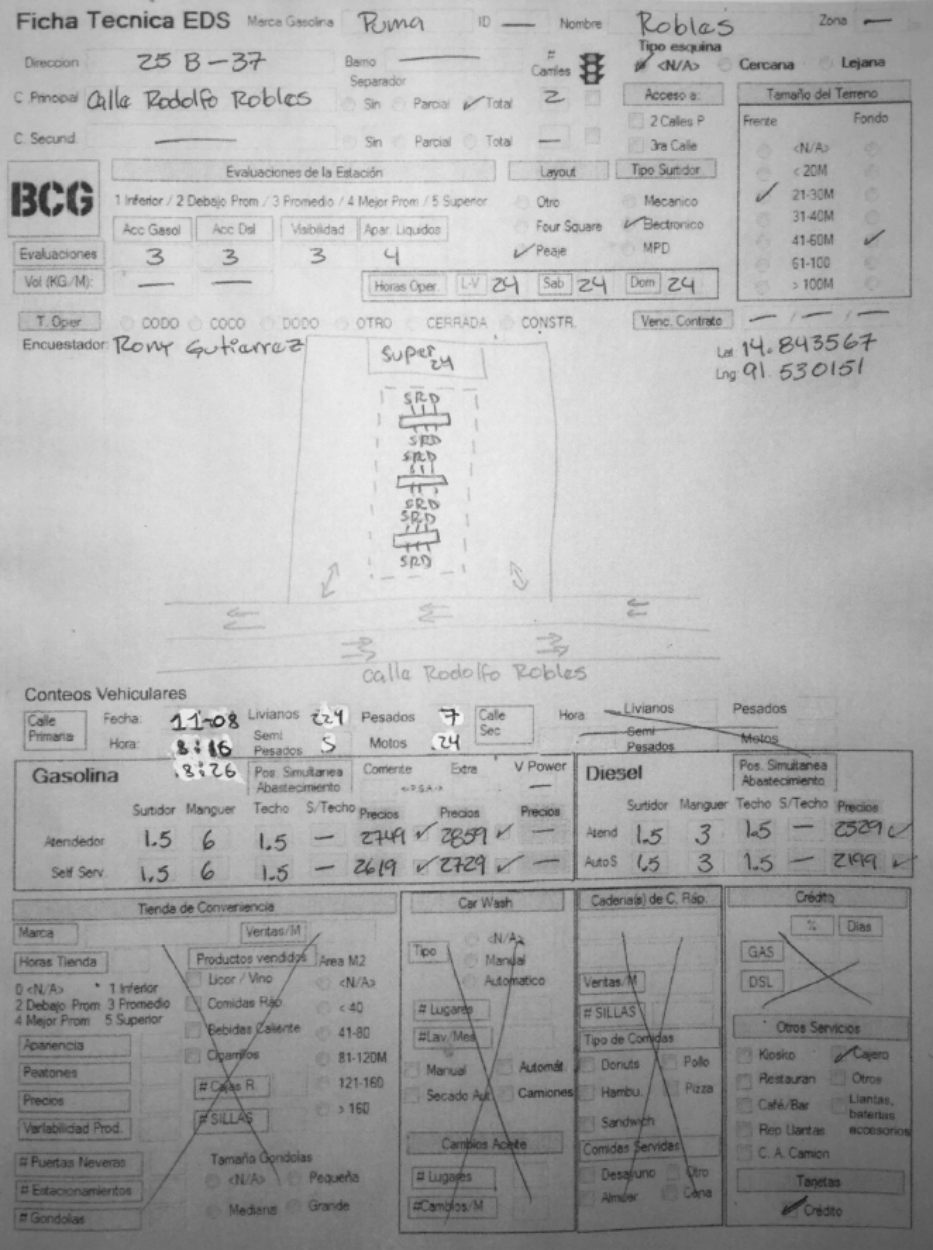 Ficha Tecnica EDS Marca Gasolina Puma ID — Nombre Robles Zona —
Tipo esquina
Direccion 25 B-37 Barrio — # Carriles <N/A> Cercana Lejana
Separador
C. Principal Calle Rodolfo Robles Sin Parcial Total 2 Acceso a: Tamaño del Terreno
2 Calles P Frente Fondo
C. Secund. — Sin Parcial Total — 3ra Calle <N/A>
BCG Evaluaciones de la Estación Layout Tipo Surtidor < 20M
1 Inferior / 2 Debajo Prom / 3 Promedio / 4 Mejor Prom / 5 Superior Otro Mecanico 21-30M
Acc Gasol Acc Dsl Visibilidad Apar. Liquidos Four Square Electronico 31-40M
Evaluaciones 3 3 3 4 Peaje MPD 41-60M
61-100
Vol (KG/M): — — Horas Oper. L-V 24 Sab 24 Dom 24 > 100M
T. Oper CODO COCO DODO OTRO CERRADA CONSTR. Venc. Contrato — / — / —
Encuestador: Rony Gutierrez Super 24 Lat 14.843567
Lng 91.530151
SRD
SRD
SRD
SRD
SRD
SRD
Calle Rodolfo Robles
Conteos Vehiculares
Calle Primaria Fecha: 11-08 Livianos 224 Pesados 7 Calle Sec Hora Livianos Pesados
Hora: 8:16 Semi Pesados 5 Motos 24 Semi Pesados Motos
8:26
Gasolina Pos. Simultanea Abastecimiento Corriente Extra V Power — Diesel Pos. Simultanea Abastecimiento
Surtidor Manguer Techo S/Techo Precios Precios Precios Surtidor Manguer Techo S/Techo Precios
Atendedor 1.5 6 1.5 — 2749 ✓ 2859 ✓ — Atend 1.5 3 1.5 — 2329 ✓
Self Serv. 1.5 6 1.5 — 2619 ✓ 2729 ✓ — AutoS 1.5 3 1.5 — 2199 ✓
Tienda de Conveniencia Car Wash Cadena(s) de C. Ráp. Crédito
Marca Ventas/M % Dias
Horas Tienda Productos vendidos Area M2 Tipo <N/A> GAS
0 <N/A> * 1 Inferior Licor / Vino <N/A> Manual Ventas/M DSL
2 Debajo Prom 3 Promedio Comidas Ráp < 40 Automatico # SILLAS
4 Mejor Prom 5 Superior Bebidas Caliente 41-80 # Lugares Otros Servicios
Apariencia Cigarrillos 81-120M #Lav/Mes Tipo de Comidas Kiosko Cajero
Peatones # Cajas R. 121-160 Manual Automát Donuts Pollo Restauran Otros
Precios # SILLAS > 160 Secado Aut. Camiones Hambu. Pizza Café/Bar Llantas, baterias accesorios
Variabilidad Prod. Sandwich Rep Llantas
# Puertas Neveras Tamaño Gondolas Cambios Aceite Comidas Servidas C. A. Camion
# Estacionamientos <N/A> Pequeña # Lugares Desayuno Otro Tarjetas
# Gondolas Mediana Grande #Cambios/M Almuer Cena Crédito